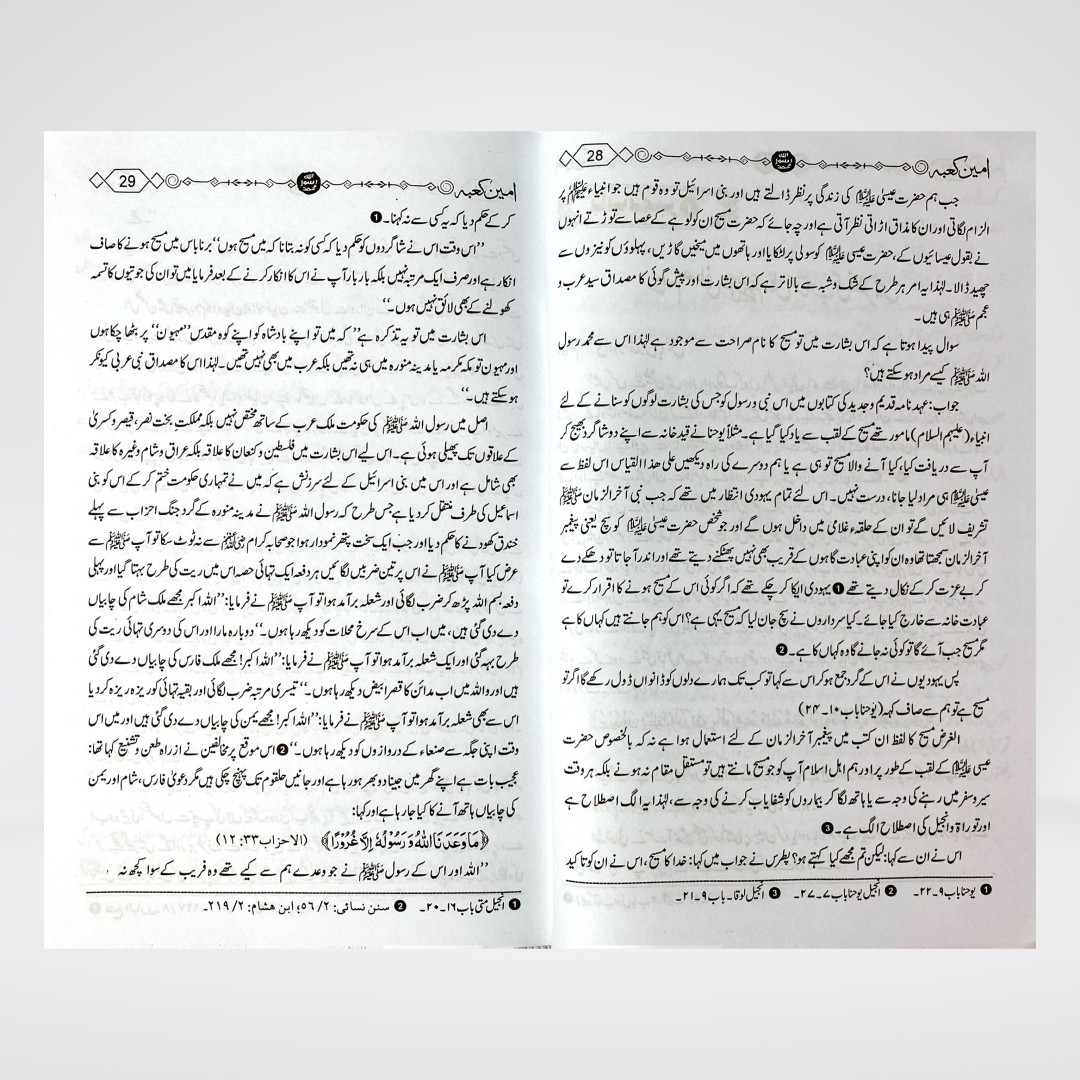 امین کعبہ
28
جب ہم حضرت عیسیٰ علیہ السلام کی زندگی پر نظر ڈالتے ہیں اور بنی اسرائیل تو وہ قوم ہیں جو انبیاء علیہم السلام پر
الزام لگاتی اور ان کا مذاق اڑاتی نظر آتی ہے اور چہ جائے کہ حضرت مسیح ان کو لوہے کے عصا سے توڑتے انہوں
نے بقول عیسائیوں کے، حضرت عیسیٰ علیہ السلام کو سولی پر لٹکایا اور ہاتھوں میں میخیں گاڑیں، پہلوؤں کو نیزوں سے
چھید ڈالا۔ لہٰذا یہ امر ہر طرح کے شک و شبہ سے بالاتر ہے کہ اس بشارت اور پیش گوئی کا مصداق سید عرب و
عجم ﷺ ہی ہیں۔
سوال پیدا ہوتا ہے کہ اس بشارت میں تو مسیح کا نام صراحت سے موجود ہے لہٰذا اس سے محمد رسول
اللہ ﷺ کیسے مراد ہو سکتے ہیں؟
جواب: عہد نامہ قدیم و جدید کی کتابوں میں اس نبی و رسول کو جس کی بشارت لوگوں کو سنانے کے لئے
انبیاء (علیہم السلام) مامور تھے مسیح کے لقب سے یاد کیا گیا ہے۔ مثلاً یوحنا نے قید خانہ سے اپنے دو شاگرد بھیج کر
آپ سے دریافت کیا، کیا آنے والا مسیح تو ہی ہے یا ہم دوسرے کی راہ دیکھیں علی ھذا القیاس اس لفظ سے
عیسیٰ علیہ السلام ہی مراد لیا جانا، درست نہیں۔ اس لئے تمام یہودی انتظار میں تھے کہ جب نبی آخر الزمان ﷺ
تشریف لائیں گے تو ان کے حلقہء غلامی میں داخل ہوں گے اور جو شخص حضرت عیسیٰ علیہ السلام کو مسیح یعنی پیغمبر
آخر الزمان سمجھتا تھا وہ ان کو اپنی عبادت گاہوں کے قریب بھی نہیں پھٹکنے دیتے تھے اور اندر آ جاتا تو دھکے دے
کر بے عزت کر کے نکال دیتے تھے ❶ یہودی ایکا کر چکے تھے کہ اگر کوئی اس کے مسیح ہونے کا اقرار کرے تو
عبادت خانہ سے خارج کیا جائے۔ کیا سرداروں نے سچ جان لیا کہ مسیح یہی ہے؟ اس کو ہم جانتے ہیں کہاں کا ہے
مگر مسیح جب آئے گا تو کوئی نہ جانے گا وہ کہاں کا ہے۔ ❷
پس یہودیوں نے اس کے گرد جمع ہو کر اس سے کہا تو کب تک ہمارے دلوں کو ڈانواں ڈول رکھے گا اگر تو
مسیح ہے تو ہم سے صاف کہہ (یوحنا باب ۱۰۔۲۴)
الغرض مسیح کا لفظ ان کتب میں پیغمبر آخر الزمان کے لئے استعمال ہوا ہے نہ کہ بالخصوص حضرت
عیسیٰ علیہ السلام کے لقب کے طور پر اور ہم اہل اسلام آپ کو جو مسیح مانتے ہیں تو مستقل مقام نہ ہونے بلکہ ہر وقت
سیر و سفر میں رہنے کی وجہ سے یا ہاتھ لگا کر بیماروں کو شفایاب کرنے کی وجہ سے، لہٰذا یہ الگ اصطلاح ہے
اور توراۃ و انجیل کی اصطلاح الگ ہے۔ ❸
اس نے ان سے کہا: لیکن تم مجھے کیا کہتے ہو؟ پطرس نے جواب میں کہا: خدا کا مسیح، اس نے ان کو تاکید
❶ یوحنا باب ۹۔۲۲۔ ❷ انجیل یوحنا باب ۷۔۲۷۔ ❸ انجیل لوقا۔ باب ۹۔۲۱۔
امین کعبہ
29
کر کے حکم دیا کہ یہ کسی سے نہ کہنا۔ ❶
’’اس وقت اس نے شاگردوں کو حکم دیا کہ کسی کو نہ بتانا کہ میں مسیح ہوں‘‘ برناباس میں مسیح ہونے کا صاف
انکار ہے اور صرف ایک مرتبہ نہیں بلکہ بار بار آپ نے اس کا انکار کرنے کے بعد فرمایا میں تو ان کی جوتیوں کا تسمہ
کھولنے کے بھی لائق نہیں ہوں۔‘‘
اس بشارت میں تو یہ تذکرہ ہے ’’کہ میں تو اپنے بادشاہ کو اپنے کوہ مقدس ’’صہیون‘‘ پر بٹھا چکا ہوں
اور صہیون تو مکہ مکرمہ یا مدینہ منورہ میں ہی نہ تھیں بلکہ عرب میں بھی نہیں تھیں۔ لہٰذا اس کا مصداق نبی عربی کیونکر
ہو سکتے ہیں۔‘‘
اصل میں رسول اللہ ﷺ کی حکومت ملک عرب کے ساتھ مختص نہیں بلکہ مملکت بخت نصر، قیصر و کسریٰ
کے علاقوں تک پھیلی ہوئی ہے۔ اس لیے اس بشارت میں فلسطین و کنعان کا علاقہ بلکہ عراق و شام وغیرہ کا علاقہ
بھی شامل ہے اور اس میں بنی اسرائیل کے لئے سرزنش ہے کہ میں نے تمہاری حکومت ختم کر کے اس کو بنی
اسماعیل کی طرف منتقل کر دیا ہے جس طرح کہ رسول اللہ ﷺ نے مدینہ منورہ کے گرد جنگ احزاب سے پہلے
خندق کھودنے کا حکم دیا اور جب ایک سخت پتھر نمودار ہوا جو صحابہ کرام رضی اللہ عنہم سے نہ ٹوٹ سکا تو آپ ﷺ سے
عرض کیا آپ ﷺ نے اس پر تین ضربیں لگائیں ہر دفعہ ایک تہائی حصہ اس میں ریت کی طرح بہتا گیا اور پہلی
دفعہ بسم اللہ پڑھ کر ضرب لگائی اور شعلہ برآمد ہوا تو آپ ﷺ نے فرمایا: ’’اللہ اکبر مجھے ملک شام کی چابیاں
دے دی گئی ہیں، میں اب اس کے سرخ محلات کو دیکھ رہا ہوں۔‘‘ دوبارہ مارا اور اس کی دوسری تہائی ریت کی
طرح بہہ گئی اور ایک شعلہ برآمد ہوا تو آپ ﷺ نے فرمایا: ’’اللہ اکبر! مجھے ملک فارس کی چابیاں دے دی گئی
ہیں اور واللہ میں اب مدائن کا قصر ابیض دیکھ رہا ہوں۔‘‘ تیسری مرتبہ ضرب لگائی اور بقیہ تہائی کو ریزہ ریزہ کر دیا
اس سے بھی شعلہ برآمد ہوا تو آپ ﷺ نے فرمایا: ’’اللہ اکبر! مجھے یمن کی چابیاں دے دی گئی ہیں اور میں اس
وقت اپنی جگہ سے صنعاء کے دروازوں کو دیکھ رہا ہوں۔‘‘ ❷ اس موقع پر مخالفین نے از راہ طعن و تشنیع کہا تھا:
عجیب بات ہے اپنے گھر میں جینا دوبھر ہو رہا ہے اور جانیں حلقوم تک پہنچ چکی ہیں مگر دعویٰ فارس، شام اور یمن
کی چابیاں ہاتھ آنے کا کیا جا رہا ہے اور کہا:
﴿مَا وَعَدَنَا اللّٰهُ وَرَسُوْلُهٗ اِلَّا غُرُوْرًا﴾ (الاحزاب ۳۳: ۱۲)
’’اللہ اور اس کے رسول ﷺ نے جو وعدے ہم سے کیے تھے وہ فریب کے سوا کچھ نہ
❶ انجیل متی باب ۱۶۔۲۰۔ ❷ سنن نسائی: ۲/ ۵۶؛ ابن ھشام: ۲/ ۲۱۹۔